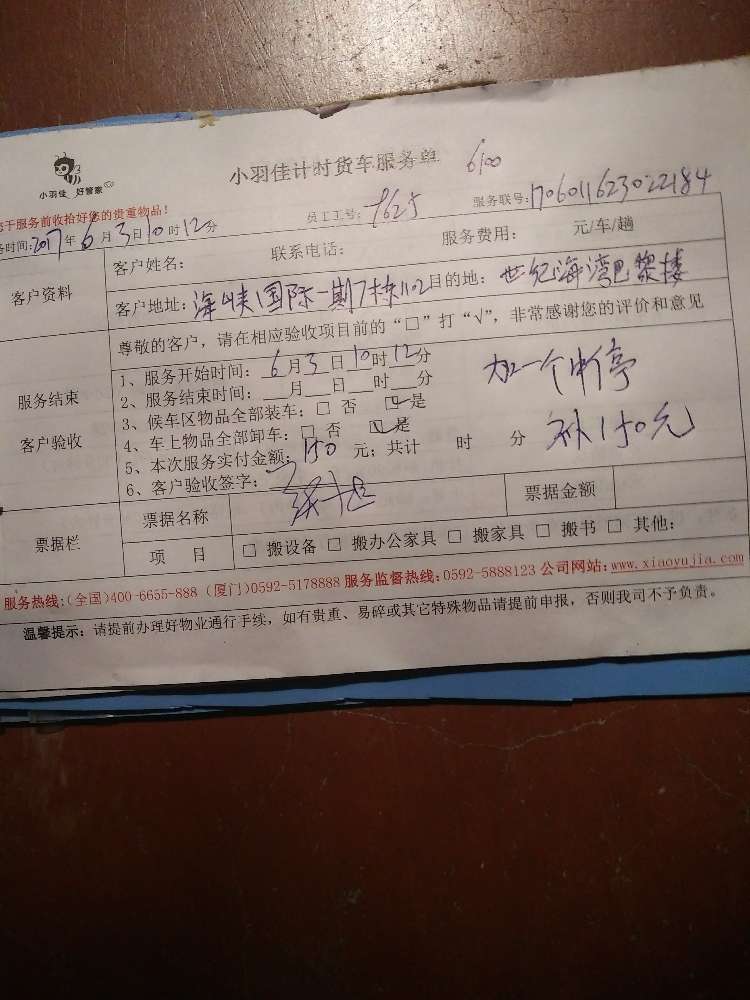 小羽佳 好管家
小羽佳计时货车服务单 6100
于服务前收拾好您的贵重物品!
员工工号: 8625 服务联号: 1706011623022184
务时间: 2017年6月3日10时12分
客户资料
客户姓名: 联系电话: 服务费用: 元/车/趟
客户地址: 海峡国际一期7栋1102 目的地: 世纪海湾巴黎楼
服务结束
客户验收
尊敬的客户，请在相应验收项目前的“□”打“√”，非常感谢您的评价和意见
1、服务开始时间: 6月3日10时12分
2、服务结束时间: __月__日__时__分
3、候车区物品全部装车: □ 否 ☑ 是
4、车上物品全部卸车: □ 否 ☑ 是
5、本次服务实付金额: 150 元; 共计 时 分
6、客户验收签字:
加一个中停
补150元
票据栏
票据名称 票据金额
项 目 □ 搬设备 □ 搬办公家具 □ 搬家具 □ 搬书 □ 其他:
服务热线:(全国)400-6655-888 (厦门)0592-5178888 服务监督热线:0592-5888123 公司网站:www.xiaoyujia.com
温馨提示: 请提前办理好物业通行手续，如有贵重、易碎或其它特殊物品请提前申报，否则我司不予负责。